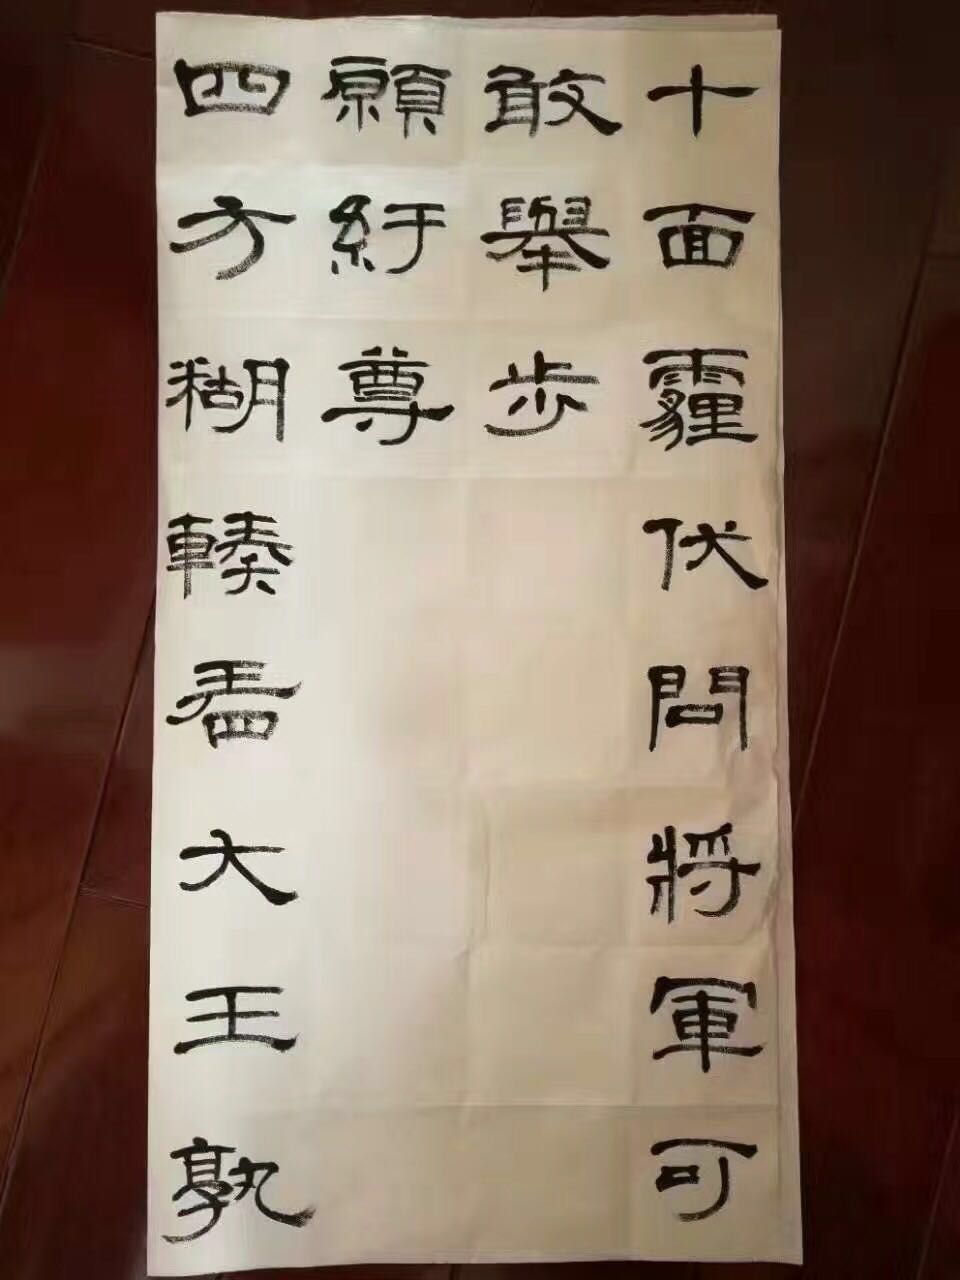 十面霾伏問將軍可
敢舉步
四方糊輳看大王孰
願紆尊